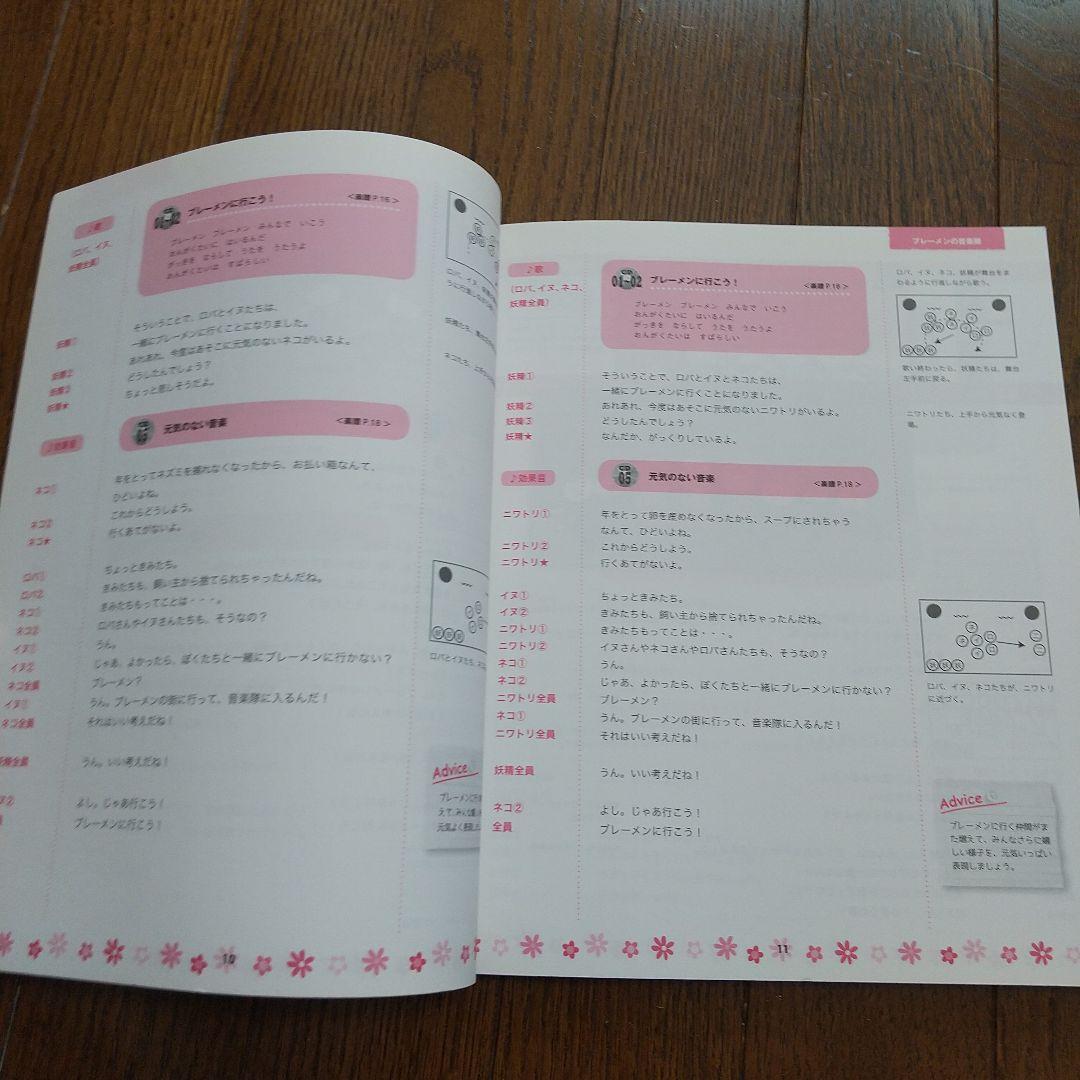 ♪歌
(ロバ、イヌ、
妖精全員)
01~02 ブレーメンに行こう! <楽譜P.16>
ブレーメン ブレーメン みんなで いこう
おんがくたいに はいるんだ
がっきを ならして うたを うたうよ
おんがくたいは すばらしい
妖精① そういうことで、ロバとイヌたちは、
一緒にブレーメンに行くことになりました。
妖精② あれあれ、今度はあそこに元気のないネコがいるよ。
妖精③ どうしたんでしょう?
妖精★ ちょっと悲しそうだよ。
♪効果音 05 元気のない音楽 <楽譜P.18>
ネコ① 年をとってネズミを捕れなくなったから、お払い箱なんて、
ひどいよね。
ネコ② これからどうしよう。
ネコ★ 行くあてがないよ。
ロバ① ちょっときみたち。
ロバ② きみたちも、飼い主から捨てられちゃったんだね。
ネコ① きみたちもってことは・・・。
ネコ② ロバさんやイヌさんたちも、そうなの?
イヌ① うん。
イヌ② じゃあ、よかったら、ぼくたちと一緒にブレーメンに行かない?
ネコ全員 ブレーメン?
イヌ① うん。ブレーメンの街に行って、音楽隊に入るんだ!
ネコ全員 それはいい考えだね!
妖精全員 うん。いい考えだね!
ヌ② よし。じゃあ行こう!
ブレーメンに行こう!
ロバとイヌたち、ネコ
Advice
10
ブレーメンの音楽隊
♪歌
(ロバ、イヌ、ネコ、
妖精全員)
CD
01~02 ブレーメンに行こう! <楽譜P.16>
ブレーメン ブレーメン みんなで いこう
おんがくたいに はいるんだ
がっきを ならして うたを うたうよ
おんがくたいは すばらしい
妖精① そういうことで、ロバとイヌとネコたちは、
一緒にブレーメンに行くことになりました。
妖精② あれあれ、今度はあそこに元気のないニワトリがいるよ。
妖精③ どうしたんでしょう?
妖精★ なんだか、がっくりしているよ。
♪効果音 CD 05 元気のない音楽 <楽譜P.18>
ニワトリ① 年をとって卵を産めなくなったから、スープにされちゃう
なんて、ひどいよね。
ニワトリ② これからどうしよう。
ニワトリ★ 行くあてがないよ。
イヌ① ちょっときみたち。
イヌ② きみたちも、飼い主から捨てられちゃったんだね。
ニワトリ① きみたちもってことは・・・。
ニワトリ② イヌさんやネコさんやロバさんたちも、そうなの?
ネコ① うん。
ネコ② じゃあ、よかったら、ぼくたちと一緒にブレーメンに行かない?
ニワトリ全員 ブレーメン?
ネコ① うん。ブレーメンの街に行って、音楽隊に入るんだ!
ニワトリ全員 それはいい考えだね!
妖精全員 うん。いい考えだね!
ネコ② よし。じゃあ行こう!
全員 ブレーメンに行こう!
ロバ、イヌ、ネコ、妖精が舞台をま
わるように行進しながら歌う。
歌い終わったら、妖精たちは、舞台
左手前に戻る。
ニワトリたち、上手から元気なく登
場。
ロバ、イヌ、ネコたちが、ニワトリ
に近づく。
Advice
ブレーメンに行く仲間がま
た増えて、みんなさらに嬉
しい様子を、元気いっぱい
表現しましょう。
11